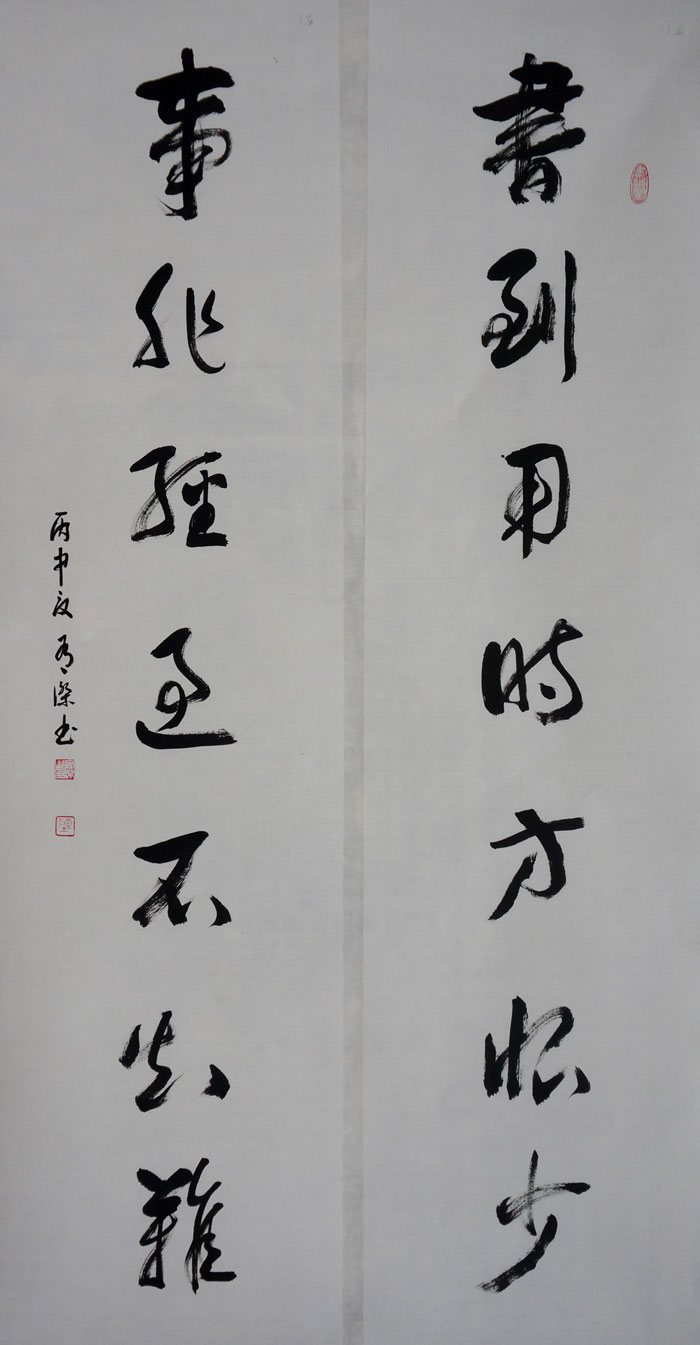 書到用時方恨少
事非經過不知難
丙申夏有傑书